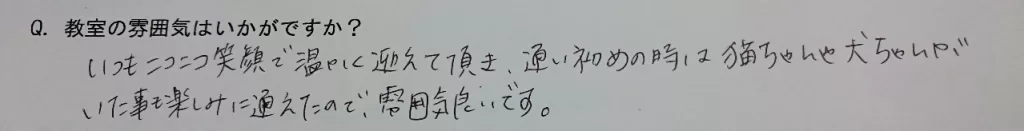 Q. 教室の雰囲気はいかがですか?
いつもニコニコ笑顔で温かく迎えて頂き、通い初めの時は猫ちゃんや犬ちゃんが
いた事も楽しみに通えたので、雰囲気良いです。